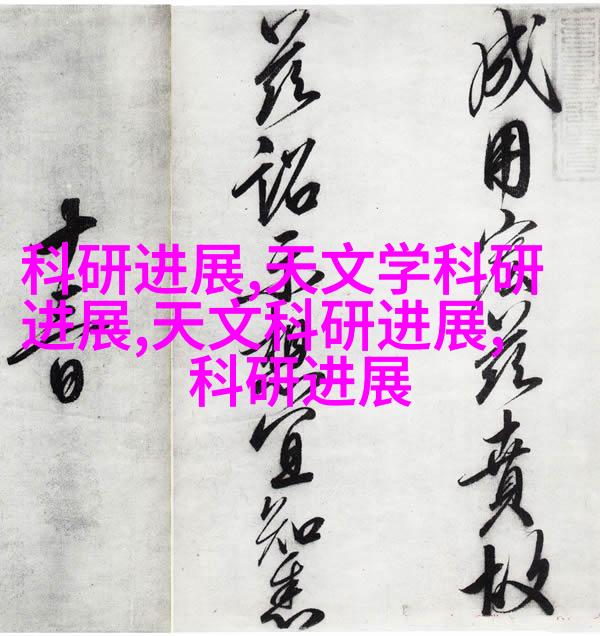 科研进展,天文学科研
进展,天文科研进展,
科研进展
成用宏茲賁故
茲詔示想宜知悉
十日